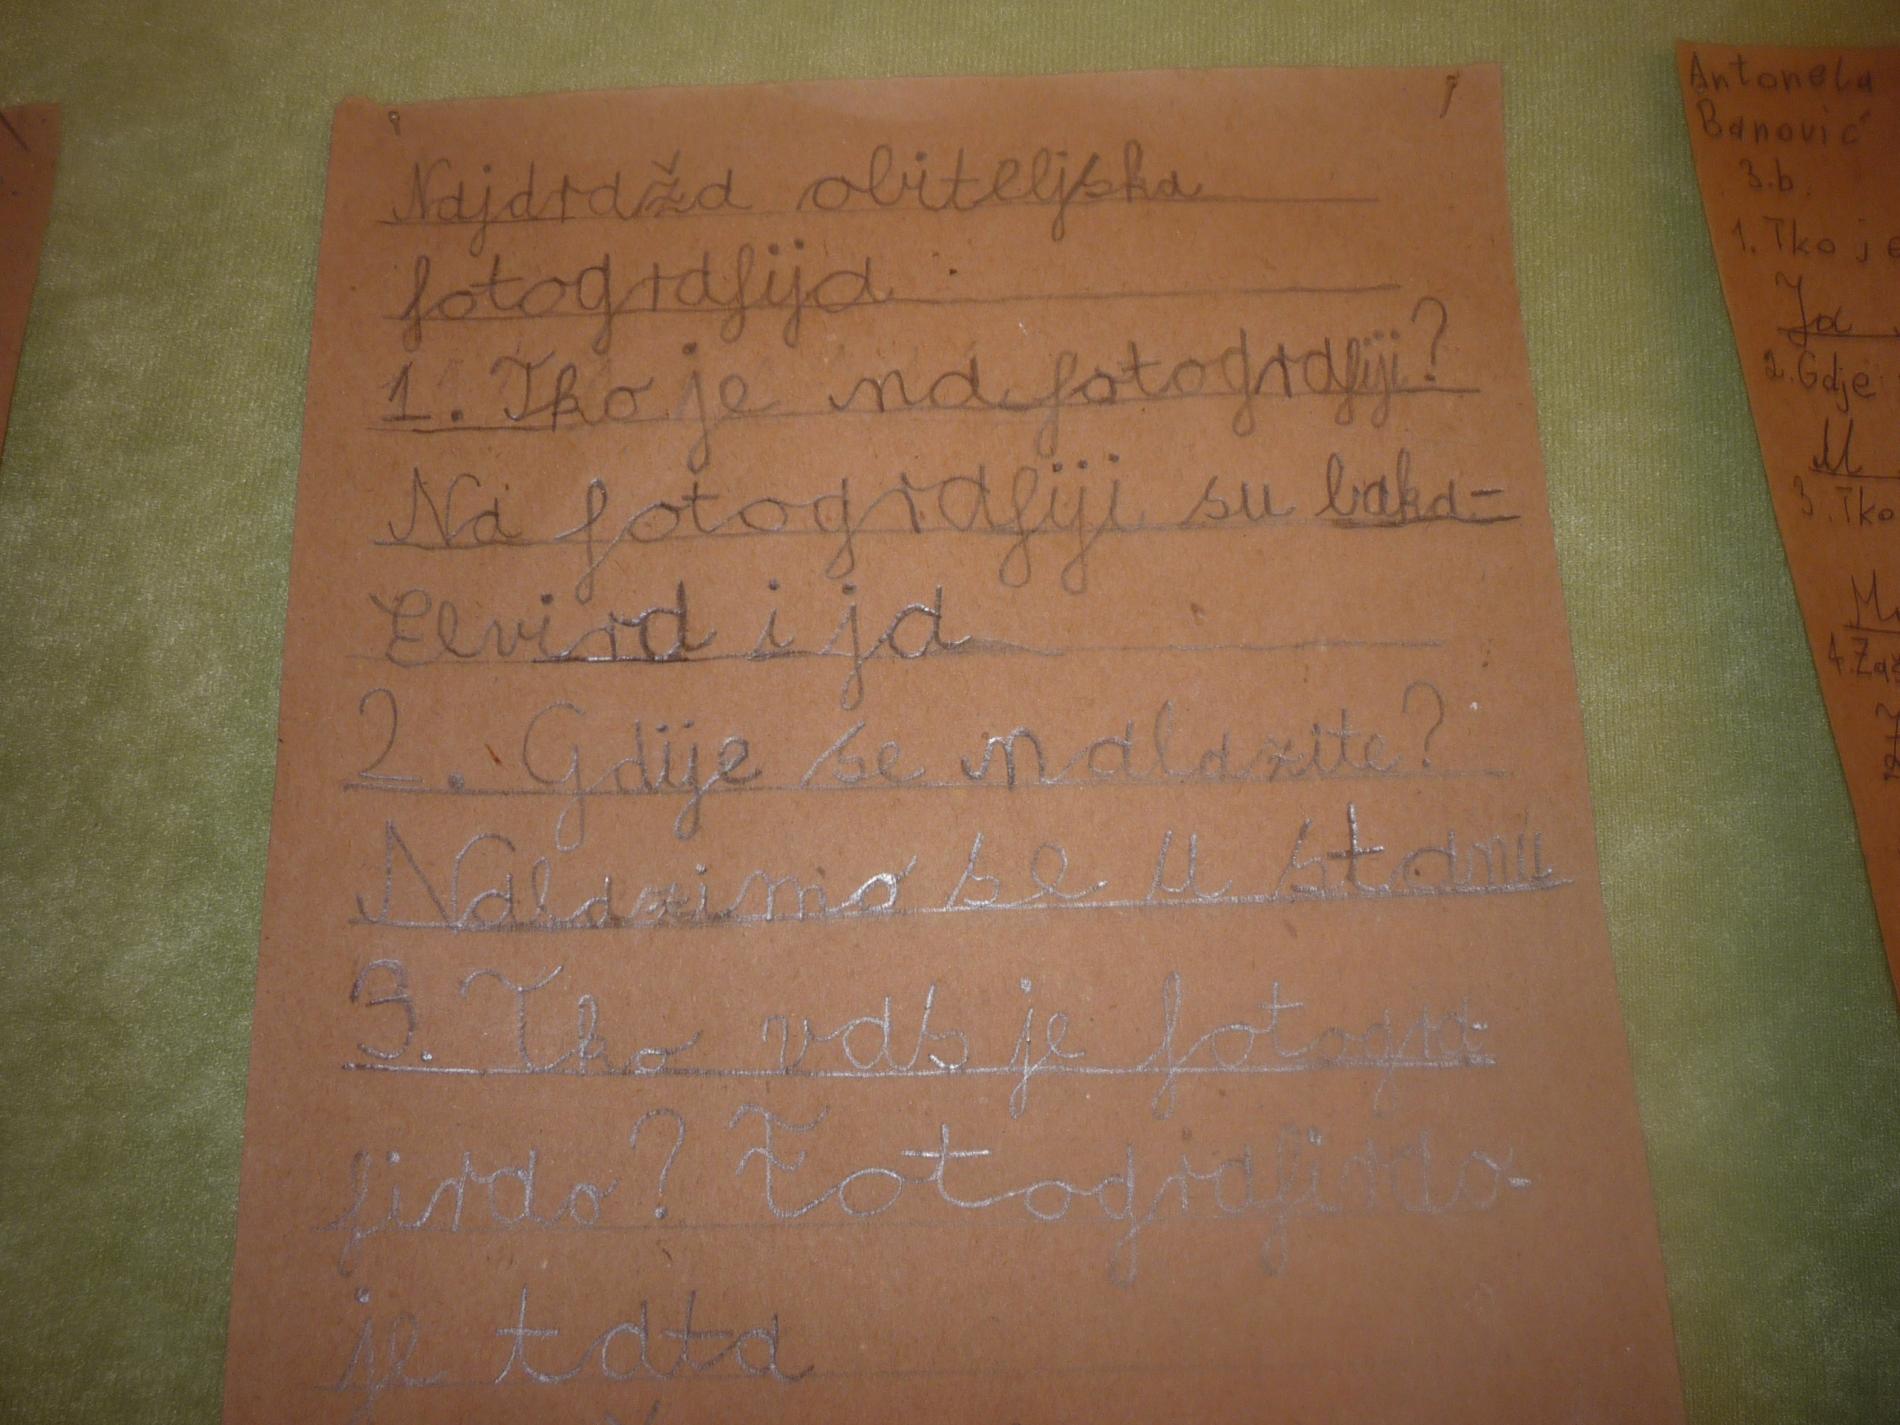 Najdraža obiteljska
fotografija
1. Tko je na fotografiji?
Na fotografiji su baka-
Elvira i ja
2. Gdije se nalazite?
Nalazimo se u stanu
3. Tko vas je fotogra-
firao? Fotografirao-
je tata
Antonela
Banović
3.b.
1. Tko je
Ja
2. Gdje
M
3. Tko
4. Zaš